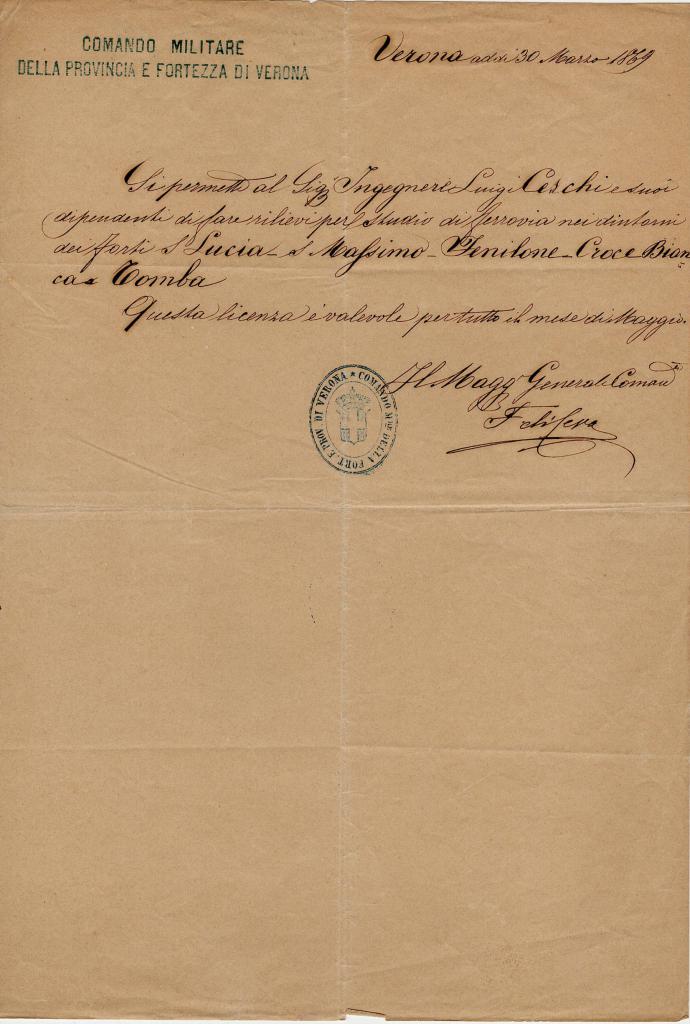 COMANDO MILITARE
DELLA PROVINCIA E FORTEZZA DI VERONA
Verona addi 30 Marzo 1869
Si permette al Sigr Ingegnere Luigi Ceschi e suoi
dipendenti di fare rilievi per studio di ferrovia nei dintorni
dei forti S Lucia - S Massimo - Fenilone - Croce Bian
ca e Tomba
Questa licenza è valevole per tutto il mese di Maggio.
Il Maggr Generale Comand
COMANDO MRE DELLA FORT. E PROV. DI VERONA